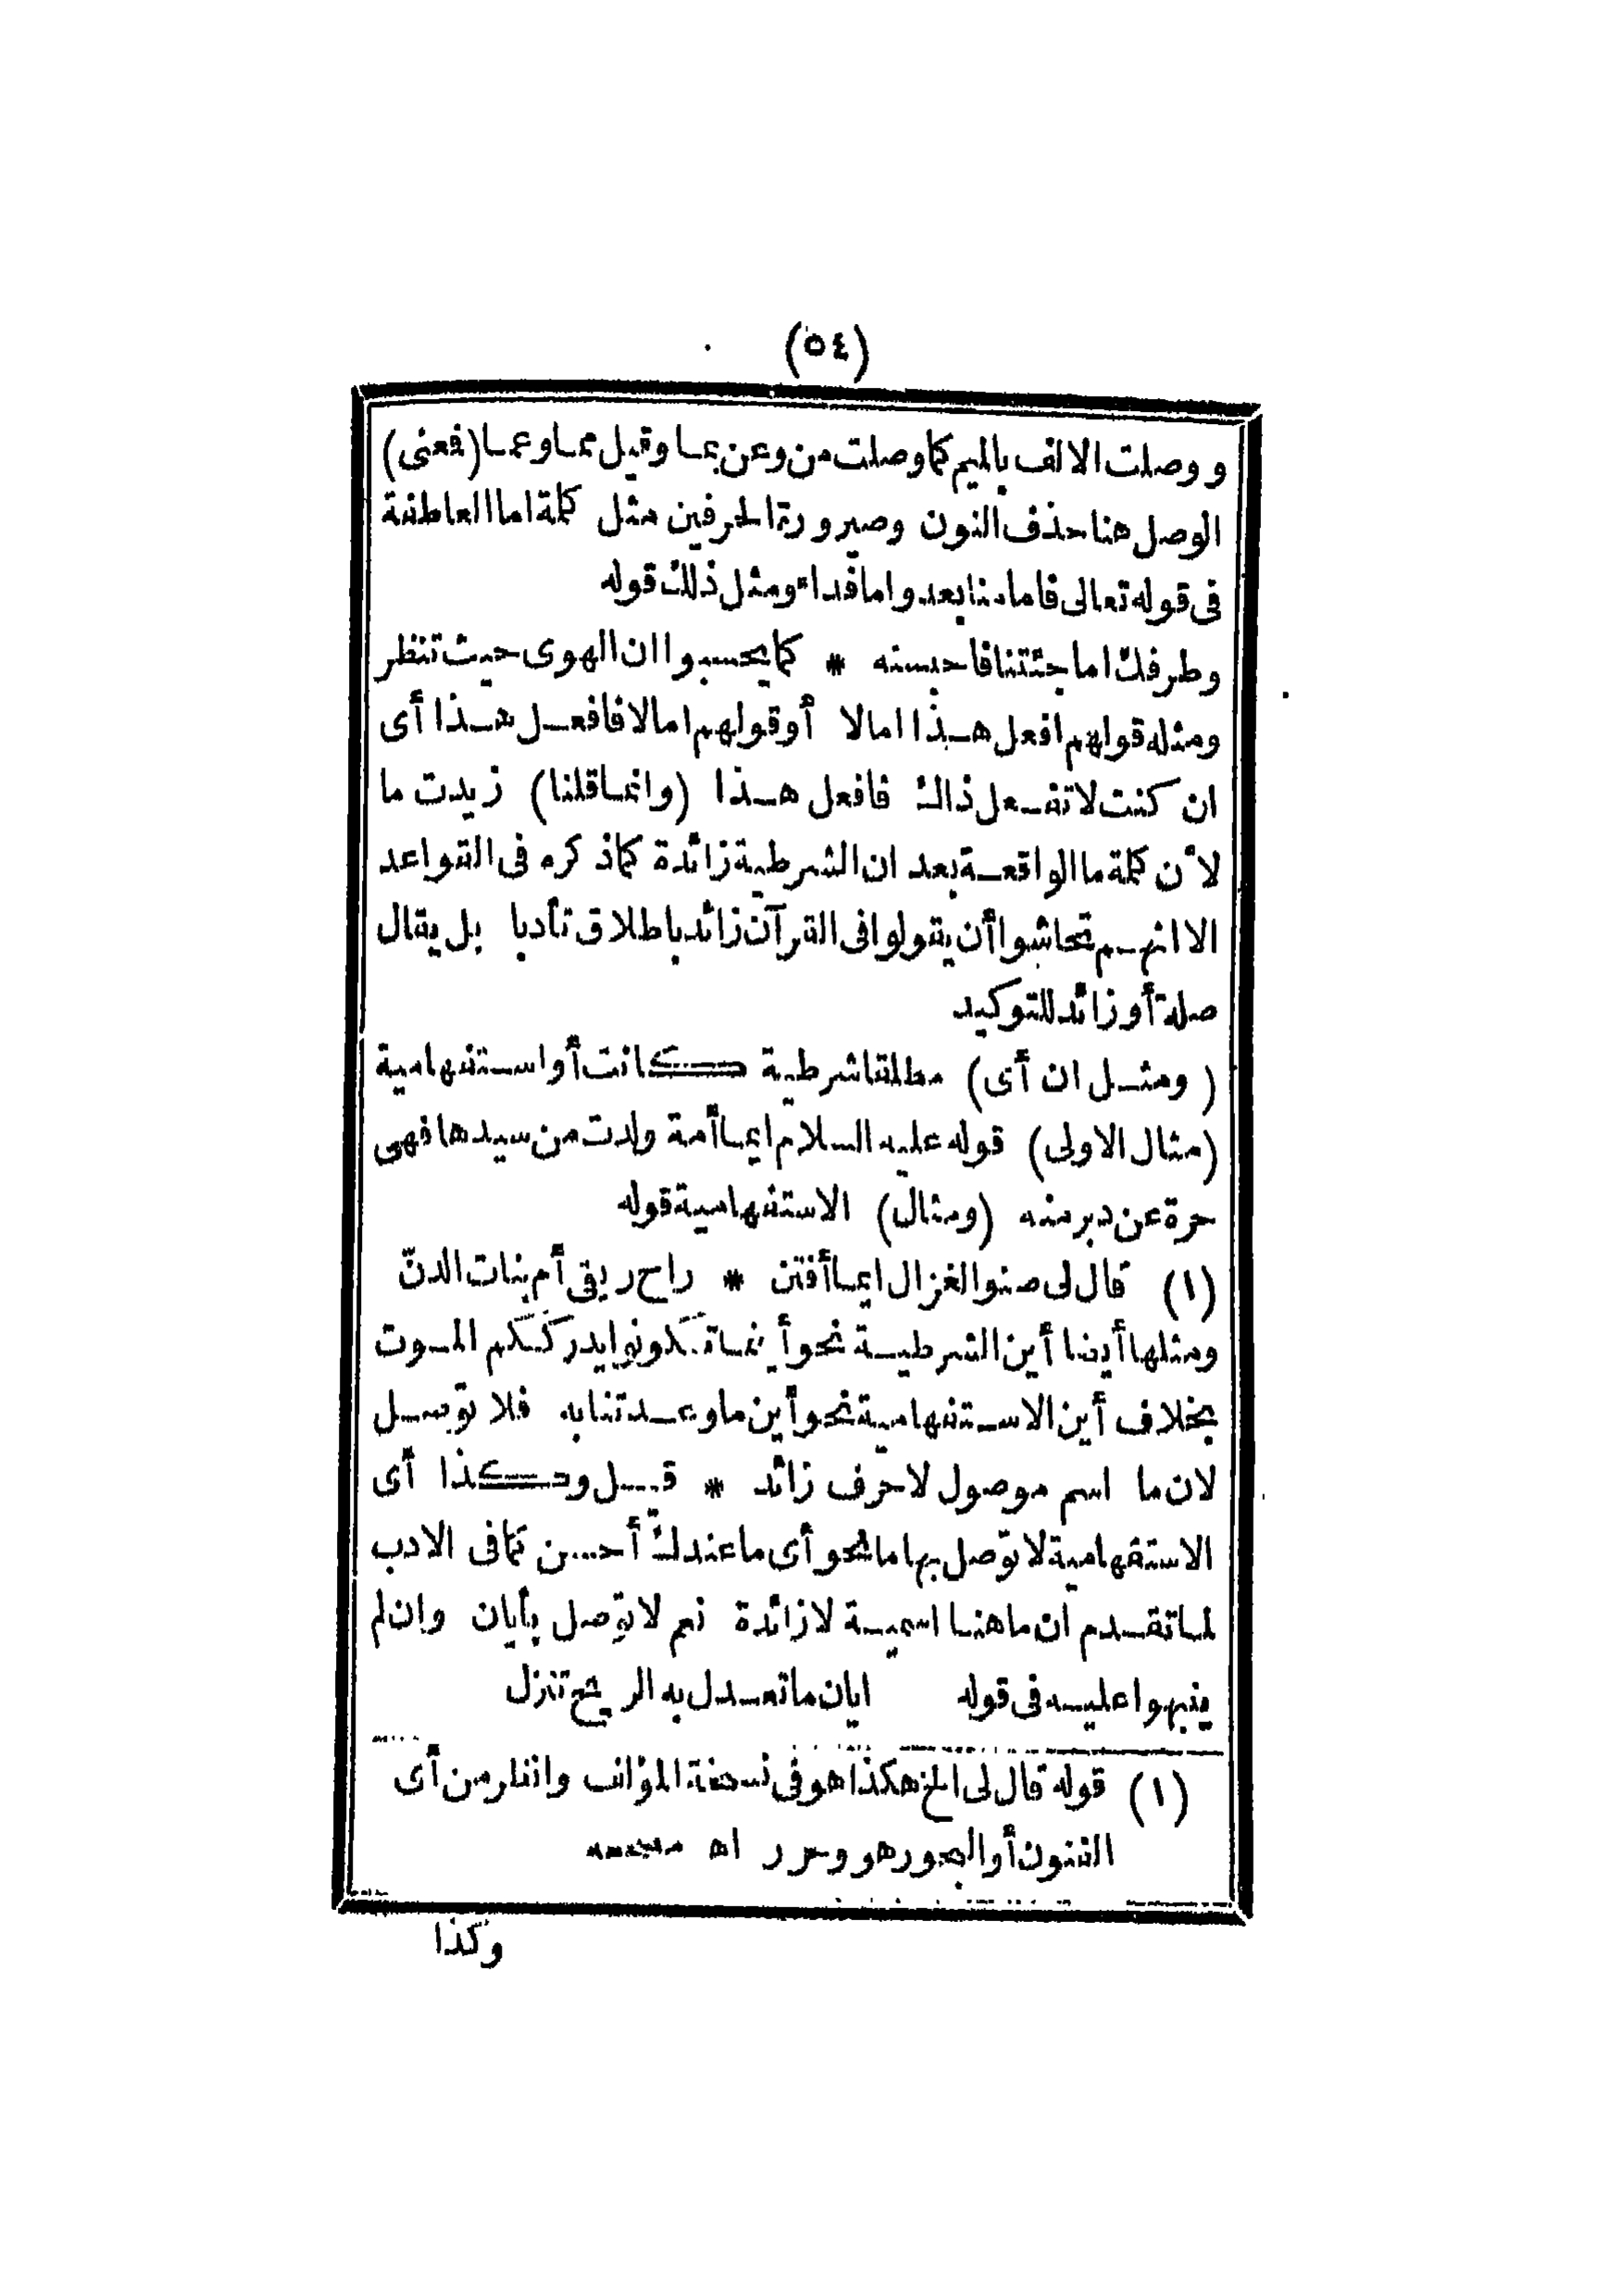 (٥٤)
و وصلت الالف بالميم كما وصلت من وعن بما وقيل مما وعما (فعنى)
الوصل هنا حذف النون وصيرورة الحرفين مثل كلمة اما العاطفة
فى قوله تعالى فاما منا بعد واما فداء ومثل ذلك قوله
وطرفك اما جئتنا فاحبسنه * كما يحسبوا ان الهوى حيث تنظر
ومثله قولهم افعل هذا امالا أو قولهم امالا فافعل هذا أى
ان كنت لا تفعل ذاك فافعل هذا (وانما قلنا) زيدت ما
لأن كلمة ما الواقعة بعد ان الشرطية زائدة كما ذكره فى القواعد
الا انهم تحاشوا أن يقولوا فى القرآن زائد باطلاق تأدبا بل يقال
صلة أو زائد للتوكيد
(ومثل ان أى) مطلقا شرطية كانت أو استفهامية
(مثال الاولى) قوله عليه السلام ايما أمة ولدت من سيدها فهى
حرة عن دبر منه (ومثال) الاستفهامية قوله
(١) قال لى صنو الغزال ايما أفتن * راح ريقى أم بنات الدنّ
ومثلها أيضا أين الشرطية نحو أينما تكونوا يدرككم الموت
بخلاف أين الاستفهامية نحو أين ما وعدتنا به فلا توصل
لان ما اسم موصول لا حرف زائد * قيل وكذا أى
الاستفهامية لا توصل بها ما نحو أى ما عندك أحسن كما فى الادب
لما تقدم ان ما هنا اسمية لا زائدة نعم لا توصل بأيان وان لم
ينبهوا عليه فى قوله ايان ما تعدل به الريح تنزل
(١) قوله قال لى الخ هكذا هو فى نسخة المؤلف وانظر من أى
الفنون أو البحور هو وحرر اه مصححه
وكذا